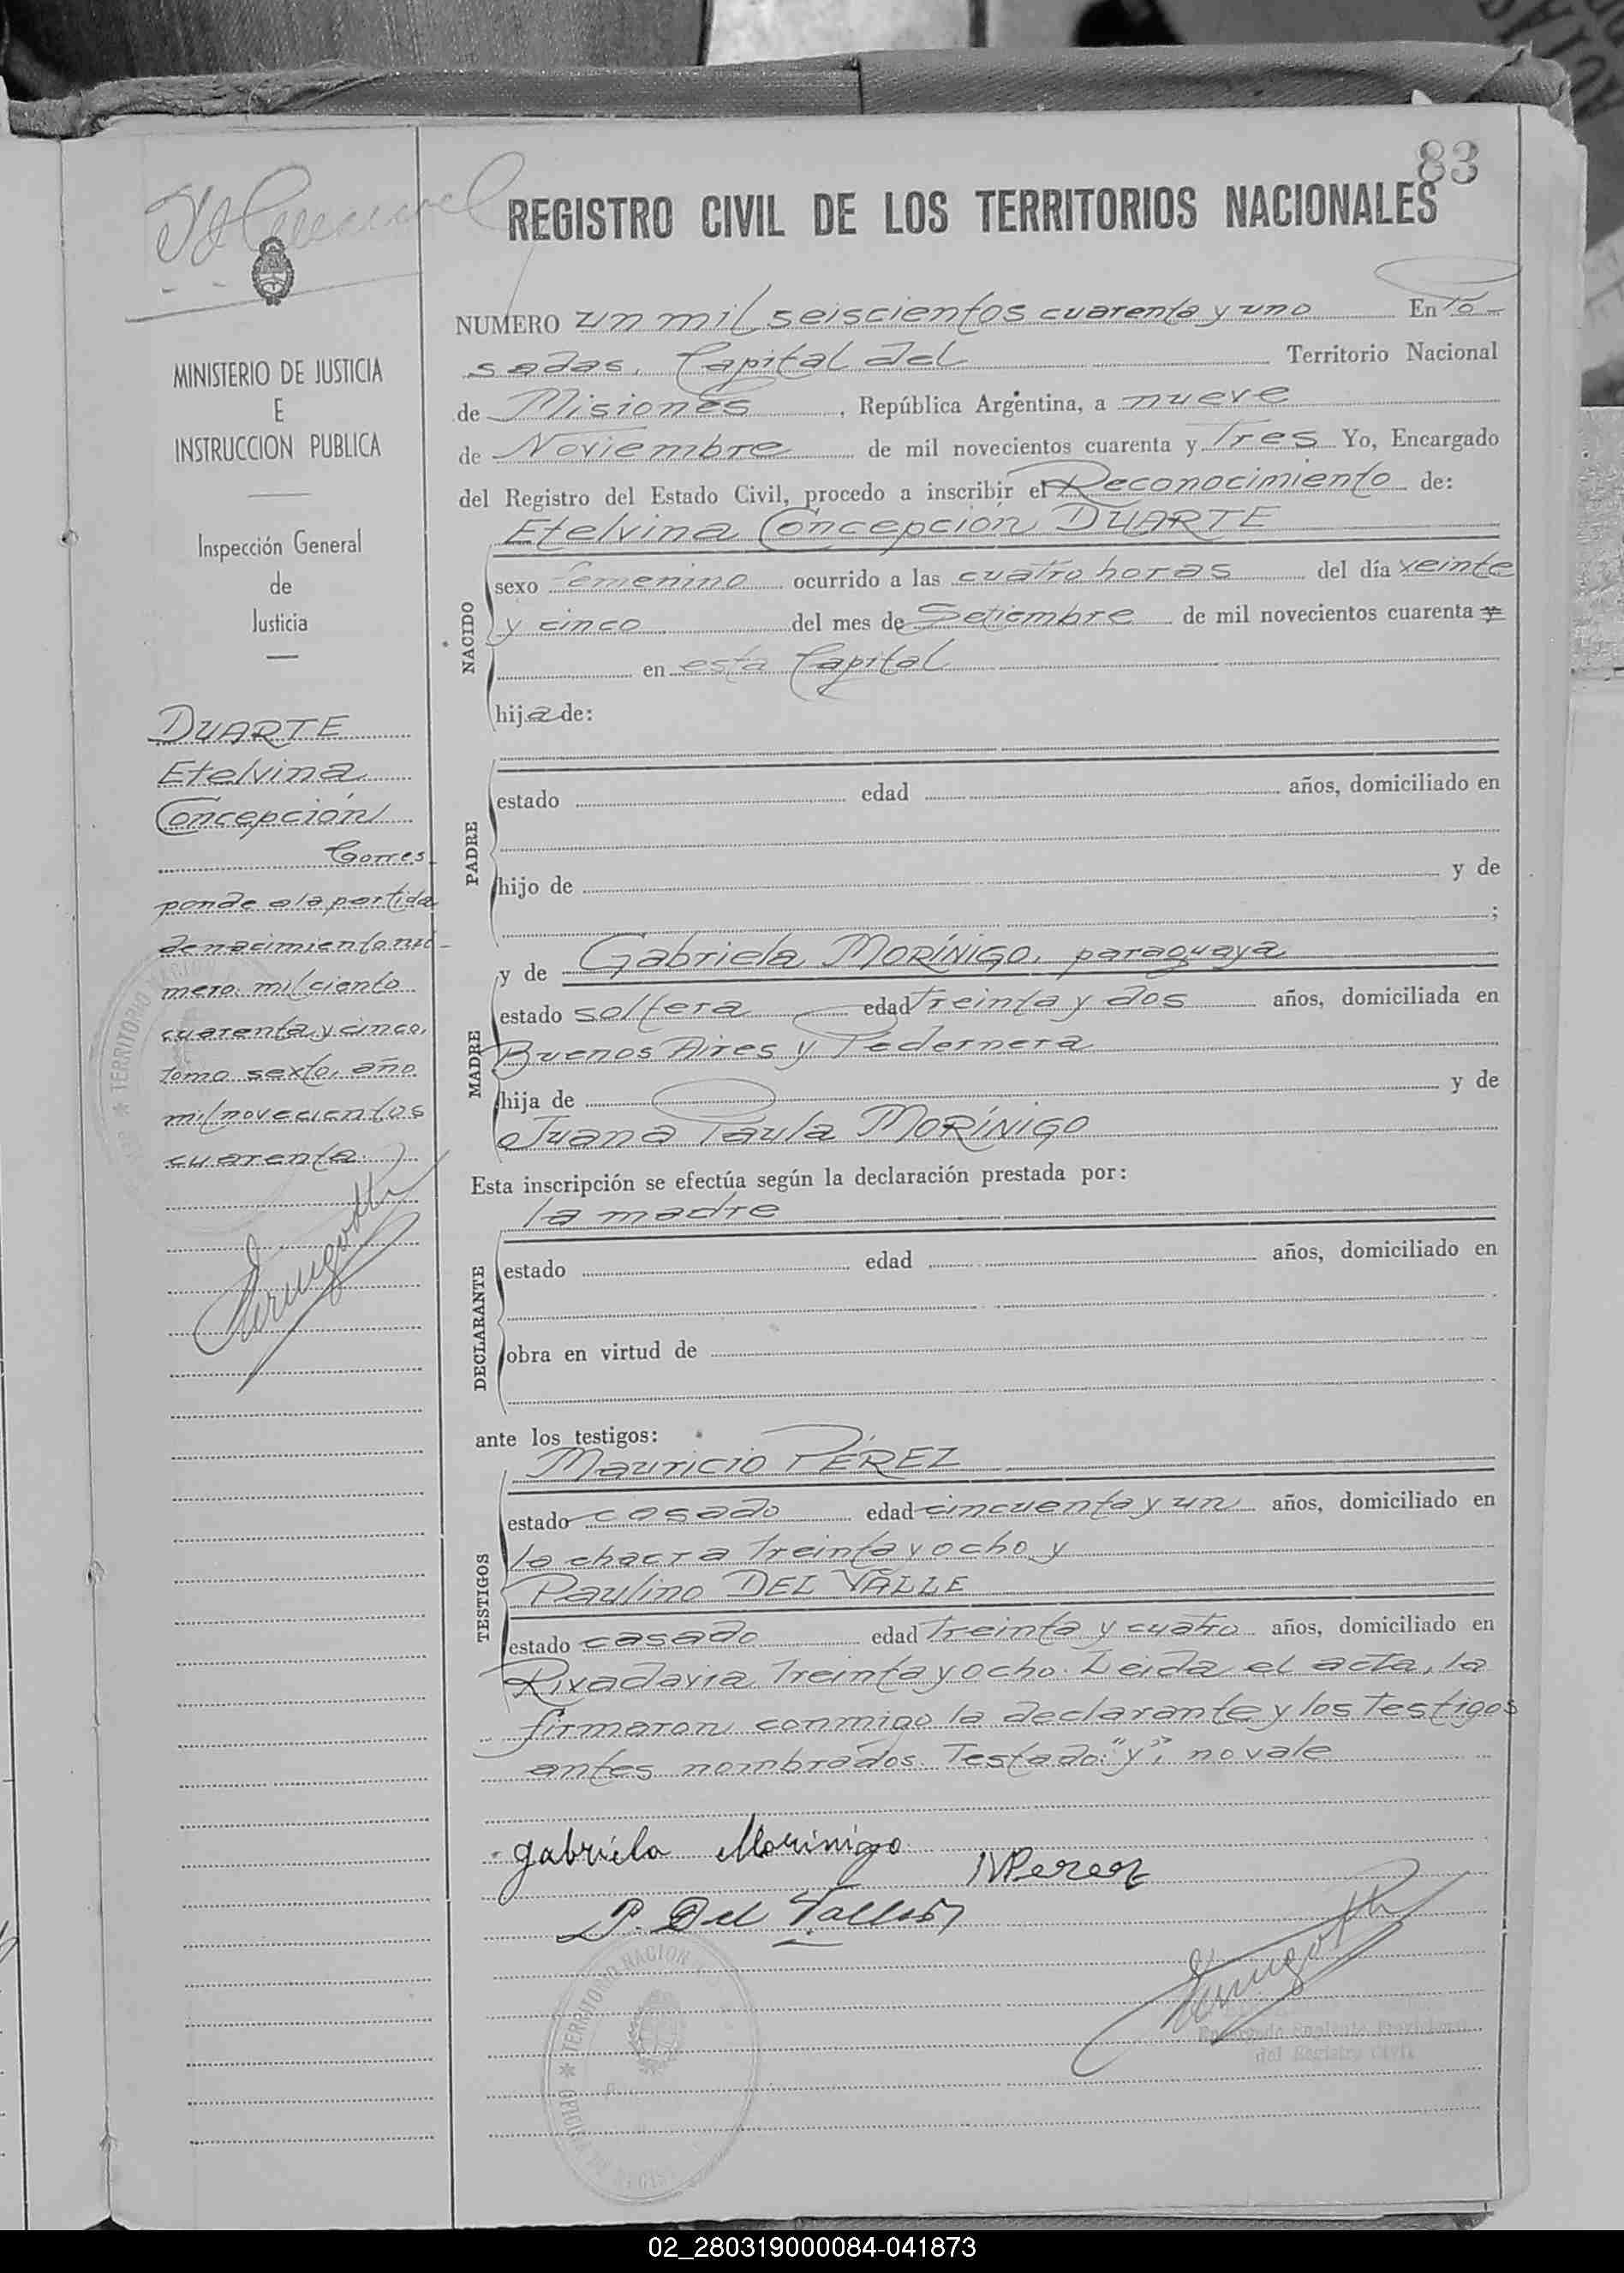 83
REGISTRO CIVIL DE LOS TERRITORIOS NACIONALES
MINISTERIO DE JUSTICIA
E
INSTRUCCION PUBLICA
Inspección General
de
Justicia
DUARTE
Etelvina
Concepción
Corres-
ponde a la partida
de nacimiento nú-
mero mil ciento
cuarenta y cinco,
tomo sexto, año
mil novecientos
cuarenta.
NUMERO un mil seiscientos cuarenta y uno En Po-
sadas, Capital del Territorio Nacional
de Misiones, República Argentina, a nueve
de Noviembre de mil novecientos cuarenta y Tres Yo, Encargado
del Registro del Estado Civil, procedo a inscribir el Reconocimiento de:
NACIDO
Etelvina Concepción DUARTE
sexo femenino ocurrido a las cuatro horas del día veinte
y cinco del mes de Setiembre de mil novecientos cuarenta y
en esta Capital
hija de:
PADRE
estado edad años, domiciliado en
hijo de y de
;
MADRE
y de Gabriela MORÍNIGO, paraguaya
estado soltera edad treinta y dos años, domiciliada en
Buenos Aires y Pedernera
hija de y de
Juana Paula MORÍNIGO
Esta inscripción se efectúa según la declaración prestada por:
DECLARANTE
la madre
estado edad años, domiciliado en
obra en virtud de
ante los testigos:
TESTIGOS
Mauricio PÉREZ
estado casado edad cincuenta y un años, domiciliado en
la chacra Treinta y ocho y
Paulino DEL VALLE
estado casado edad Treinta y cuatro años, domiciliado en
Rivadavia Treinta y ocho. Leida el acta, la
firmaron conmigo la declarante y los Testigos
antes nombrados. Testado: "y", no vale
gabriela Morinigo
MPerez
P. Del Valle
TERRITORIO NACION
Encargado Suplente Provisional
del Registro Civil
02_280319000084-041873